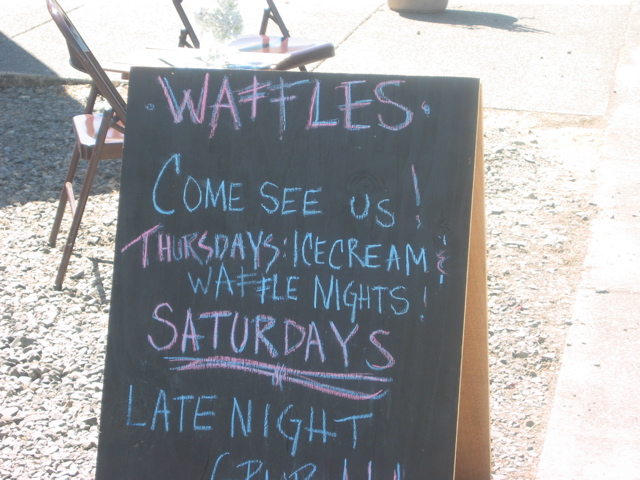 WAFFLES
COME SEE US!
THURSDAYS: ICECREAM &
WAFFLE NIGHTS!
SATURDAYS
LATE NIGHT